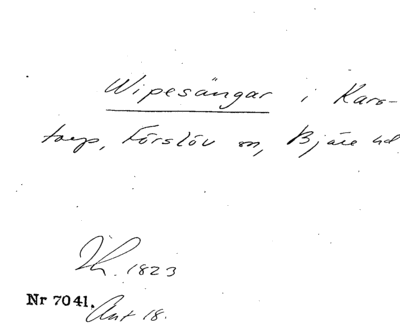 Wipesängar i Kars-
torp, Förslöv sn, Bjäre hd
Jh. 1823
Nr 7041.
Ant 18.